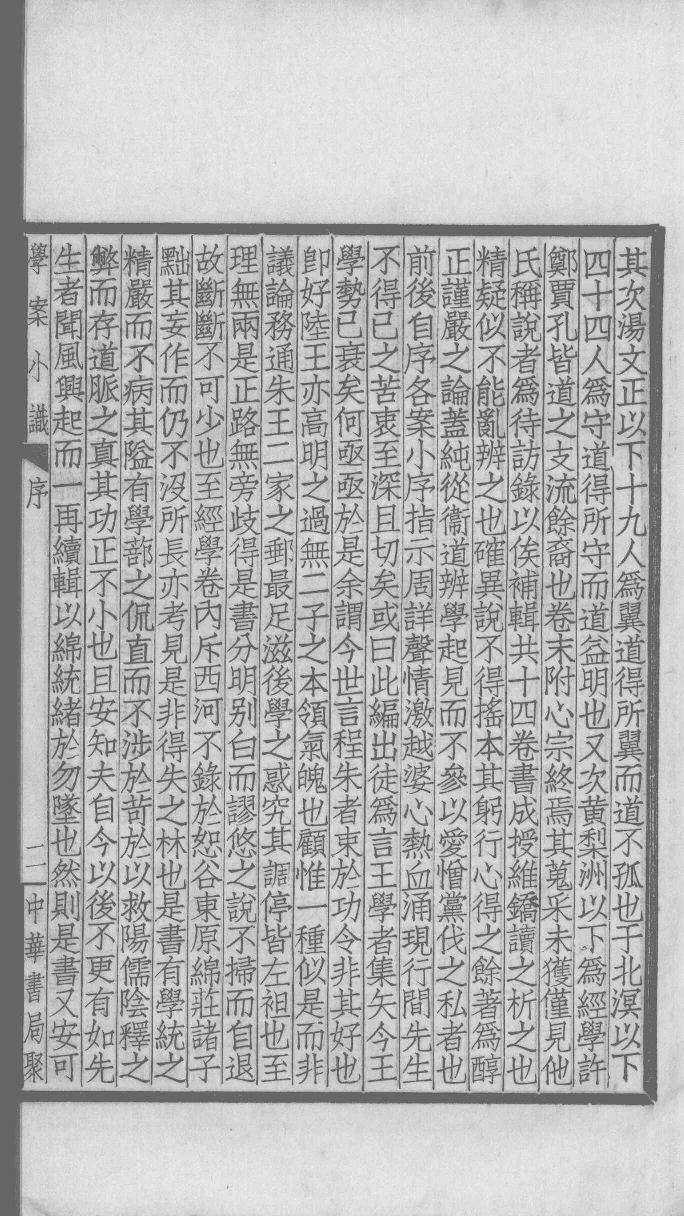 其次湯文正以下十九人爲翼道得所翼而道不孤也于北溟以下
四十四人爲守道得所守而道益明也又次黄梨洲以下爲經學許
鄭賈孔皆道之支流餘裔也卷末附心宗終焉其蒐采未獲僅見他
氏稱說者爲待訪錄以俟補輯共十四卷書成授維鐈讀之析之也
精疑似不能亂辨之也確異說不得搖本其躬行心得之餘著爲醇
正謹嚴之論蓋純從衞道辨學起見而不參以愛憎黨伐之私者也
前後自序各案小序指示周詳聲情激越婆心熱血涌現行間先生
不得已之苦衷至深且切矣或曰此編出徒爲言王學者集矢今王
學勢已衰矣何亟亟於是余謂今世言程朱者束於功令非其好也
卽好陸王亦高明之過無二子之本領氣魄也顧惟一種似是而非
議論務通朱王二家之郵最足滋後學之惑究其調停皆左袒也至
理無兩是正路無旁歧得是書分明别白而謬悠之說不掃而自退
故斷斷不可少也至經學卷內斥西河不錄於恕谷東原綿莊諸子
黜其妄作而仍不沒所長亦考見是非得失之林也是書有學統之
精嚴而不病其隘有學蔀之侃直而不涉於苛於以救陽儒陰釋之
弊而存道脈之真其功正不小也且安知夫自今以後不更有如先
生者聞風興起而一再續輯以綿統緒於勿墜也然則是書又安可
學案小識
序
二
中華書局聚